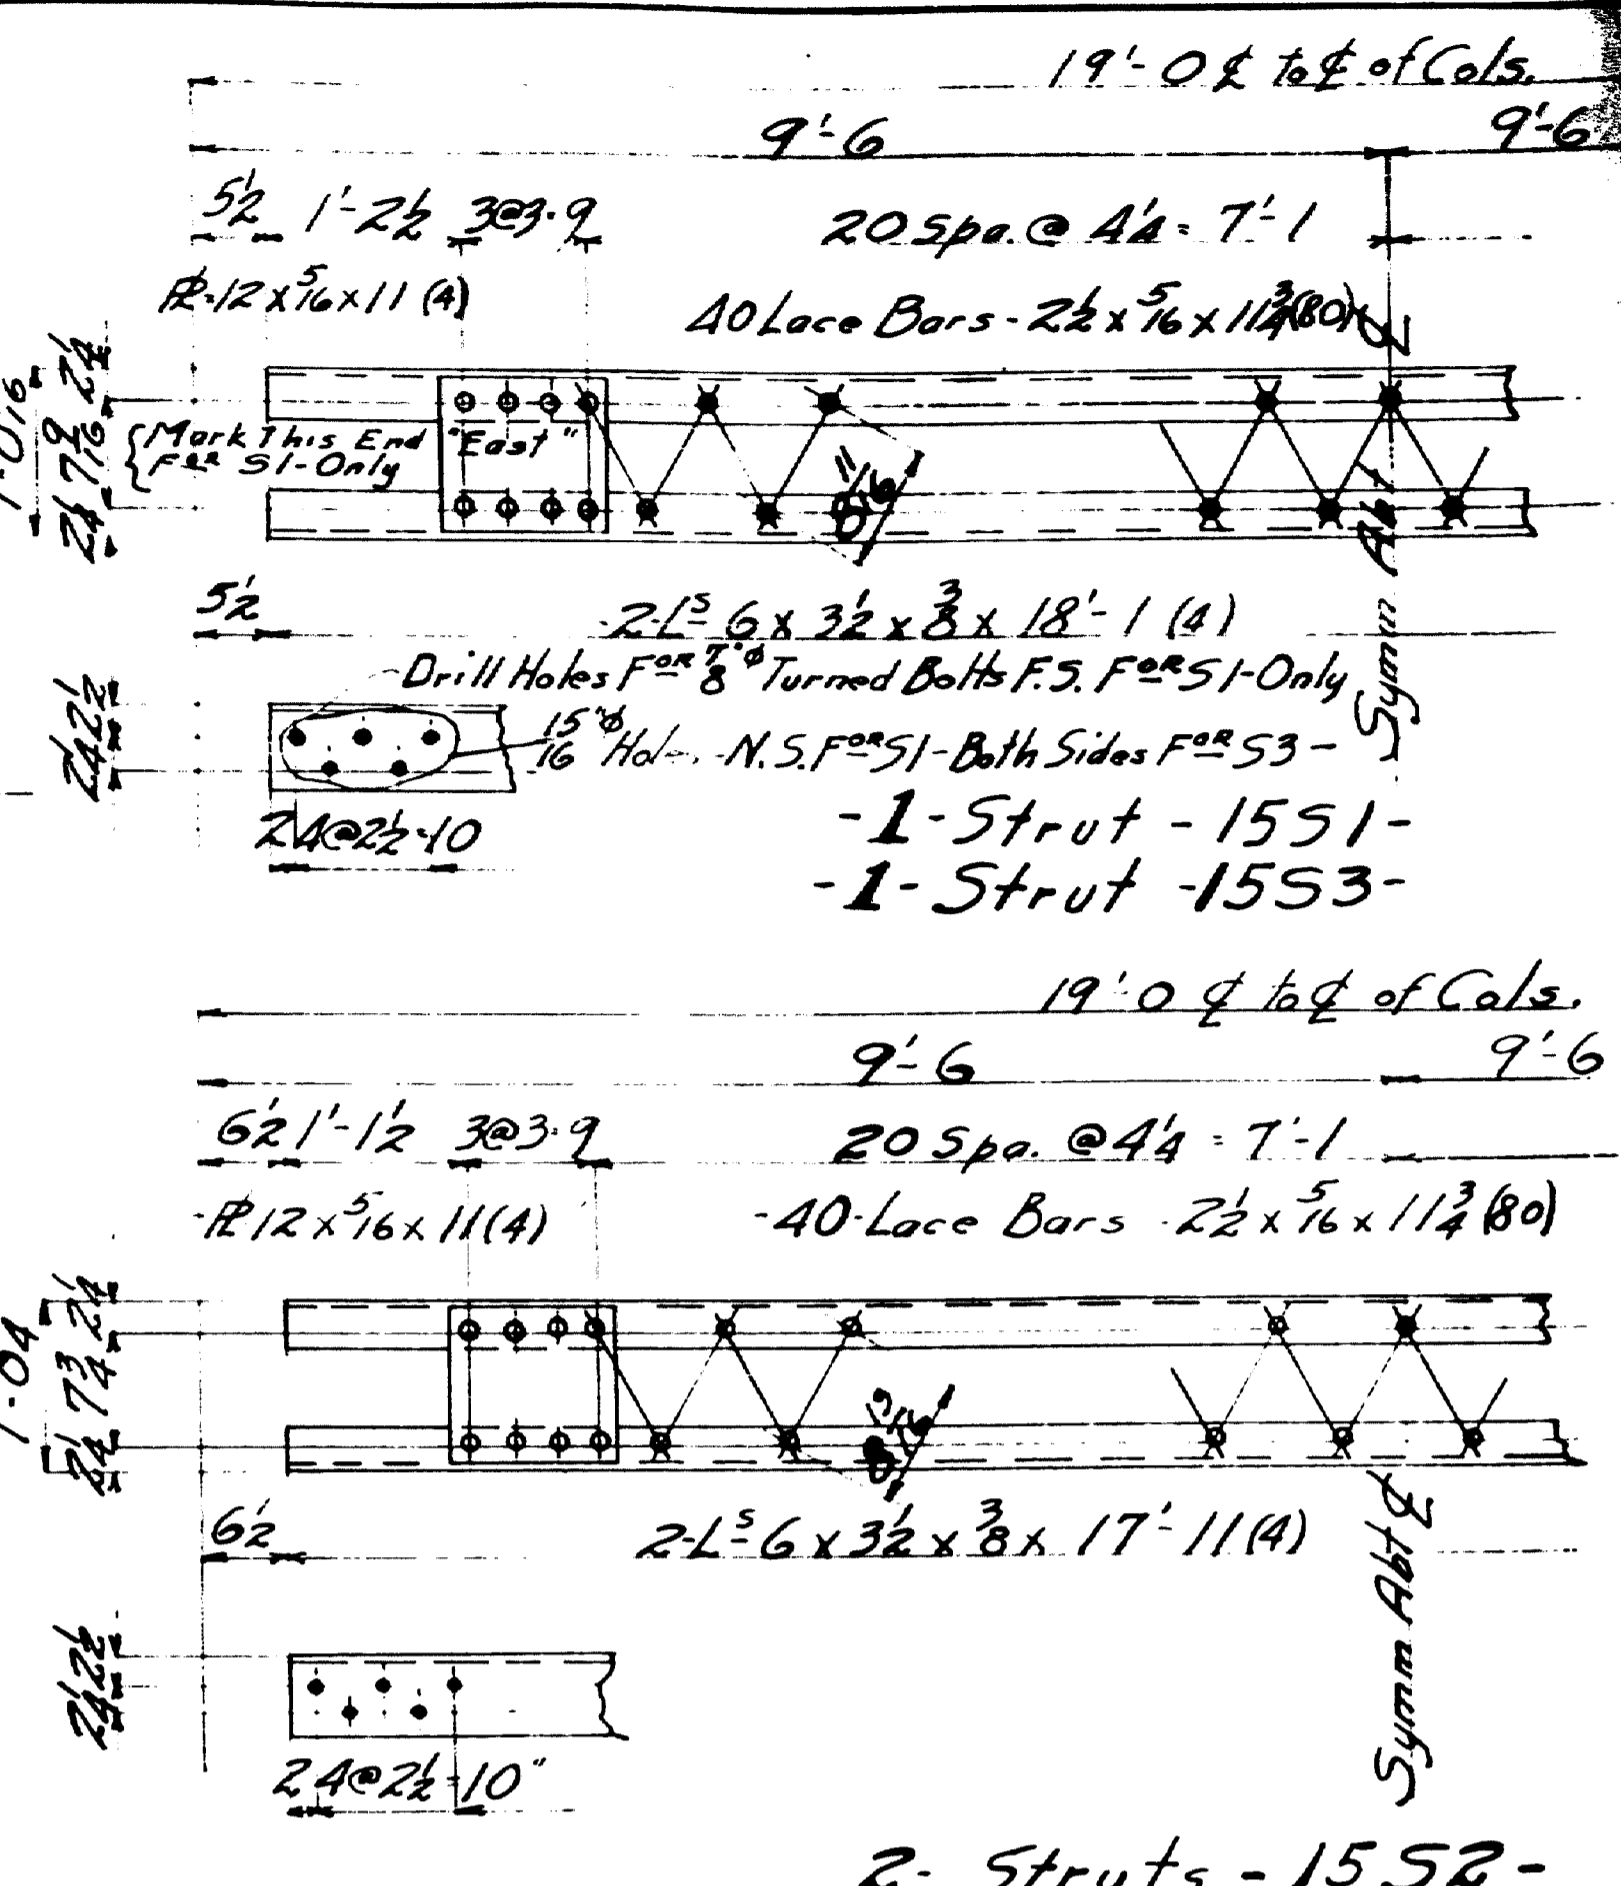 19'-0 ℄ to ℄ of Cols.
9'-6 9'-6
5½ 1'-2½ 3@3=9 20 Spa. @ 4¼ = 7'-1
PL-12 x 5/16 x 11 (4) 40 Lace Bars - 2½ x 5/16 x 11¾ (80)
2¼
7 9/16
2¼
{Mark This End "East"
For S1-Only
8 11/16
Symm Abt ℄
5½ 2-Ls 6 x 3½ x 3/8 x 18'-1 (4)
-Drill Holes For 7/8"ø Turned Bolts F.S. For S1-Only
15/16"ø N.S. For S1-Both Sides For S3-
2½
2¼
2 4@2½=10
-1-Strut-15S1-
-1-Strut-15S3-
19'-0 ℄ to ℄ of Cols.
9'-6 9'-6
6½ 1'-1½ 3@3=9 20 Spa. @ 4¼ = 7'-1
-PL 12 x 5/16 x 11 (4) -40-Lace Bars - 2½ x 5/16 x 11¾ (80)
2¼
7¾
2¼
6½ 2-Ls 6 x 3½ x 3/8 x 17'-11 (4)
Symm Abt ℄
2½
2¼
2 4@2½=10"
2- Struts - 15S2-